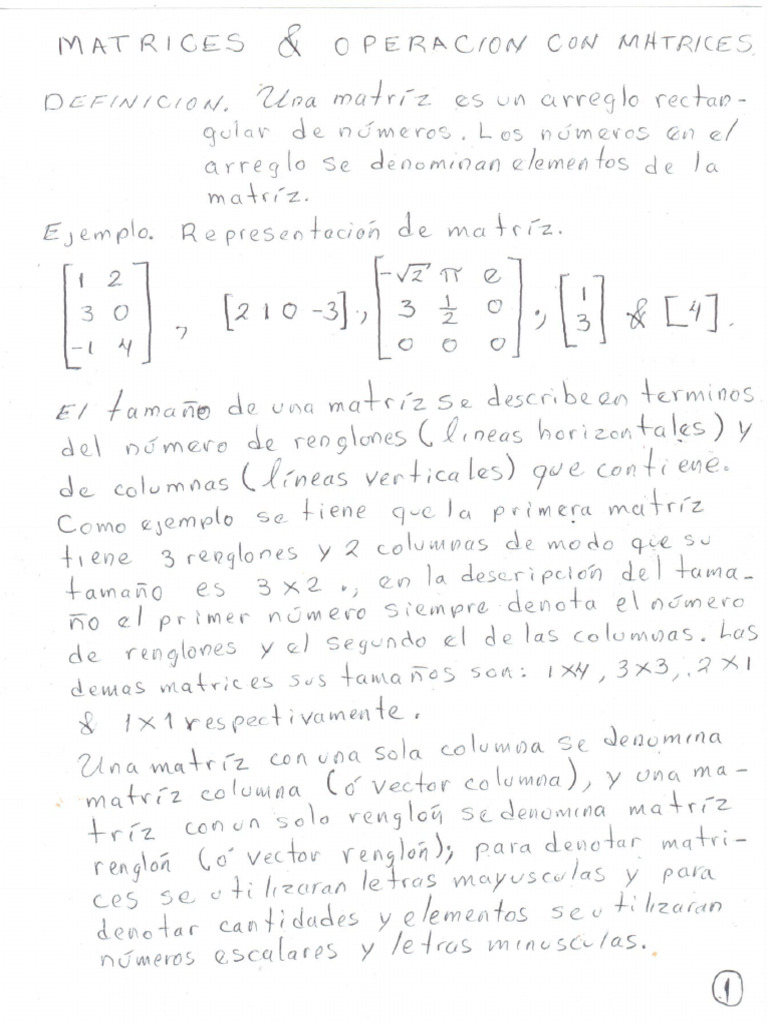 MATRICES & OPERACION CON MATRICES.
DEFINICION. Una matríz es un arreglo rectan-
gular de números. Los números en el
arreglo se denominan elementos de la
matríz.
Ejemplo. Representación de matríz.
[1 2; 3 0; -1 4], [2 1 0 -3], [-√2 π e; 3 1/2 0; 0 0 0]; [1; 3] & [4].
El tamaño de una matríz se describe en terminos
del número de renglones (líneas horizontales) y
de columnas (líneas verticales) que contiene.
Como ejemplo se tiene que la primera matríz
tiene 3 renglones y 2 columnas de modo que su
tamaño es 3×2 ., en la descripción del tama-
ño el primer número siempre denota el número
de renglones y el segundo el de las columnas. Las
demas matrices sus tamaños son: 1×4, 3×3, 2×1
& 1×1 respectivamente.
Una matríz con una sola columna se denomina
matríz columna (ó vector columna), y una ma-
tríz con un solo renglón se denomina matríz
renglón (ó vector renglón); para denotar matri-
ces se utilizaran letras mayusculas y para
denotar cantidades y elementos se utilizaran
números escalares y letras minusculas.
1